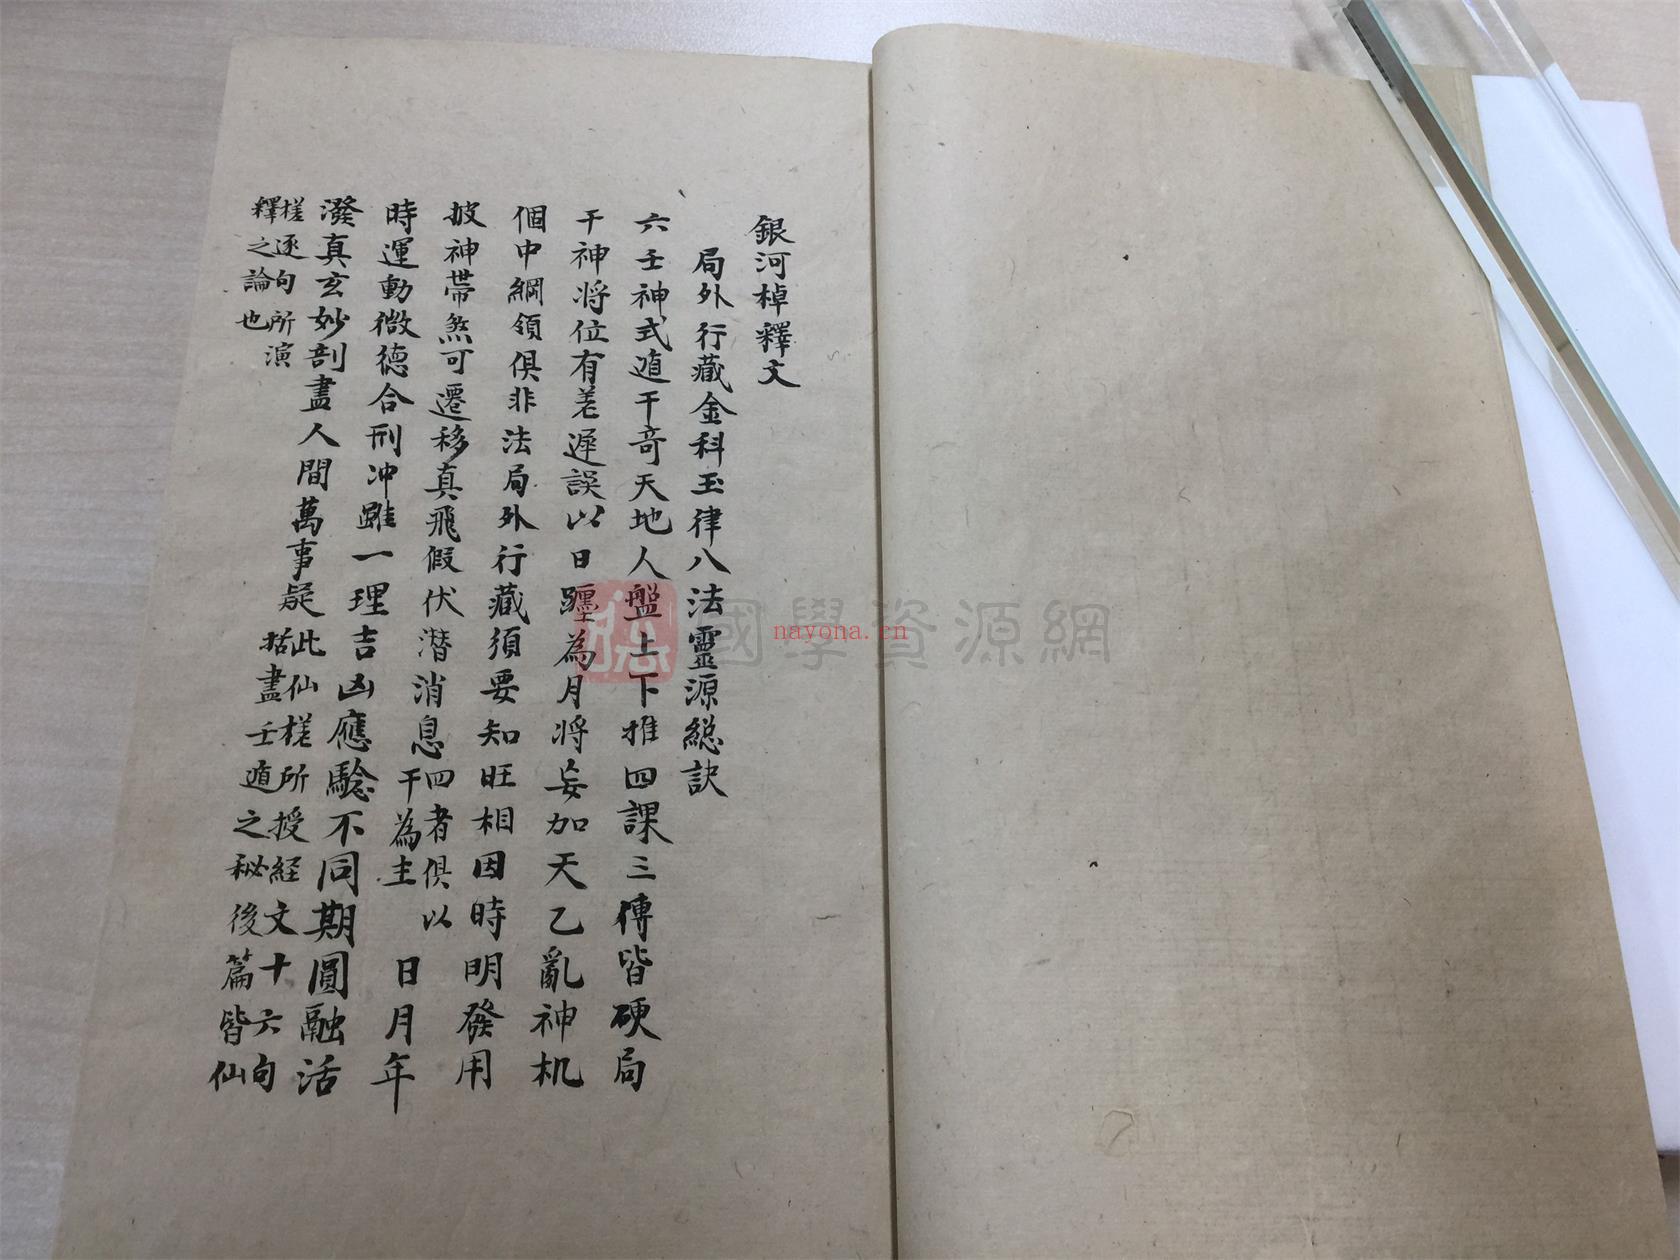 銀河棹釋文
局外行藏金科玉律八法靈源総訣
六壬神式遁干竒天地人盤上下推四課三傳皆硬局
干神将位有差遲誤以日躔為月将妄加天乙亂神机
個中綱領俱非法局外行藏須要知旺相因時明發用
披神帶煞可遷移真飛假伏潜消息四者俱以干為主日月年
時運動微德合刑冲雖一理吉凶應騐不同期圓融活
潑真玄妙剖盡人間萬事疑此仙槎所授経文十六句括盡壬遁之秘後篇皆仙
槎逐句所演釋之論也
國學資源網
nayona.cn